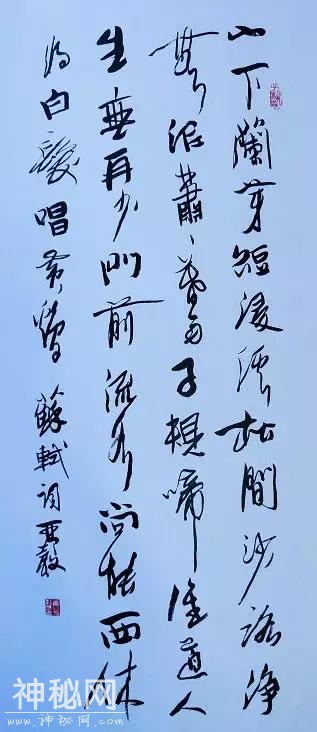 山下蘭芽短浸溪松間沙路淨
無泥蕭〻暮雨子規啼誰道人
生無再少門前流水尚能西休
將白髮唱黃雞 蘇軾詞
神秘网
www.神秘网.com